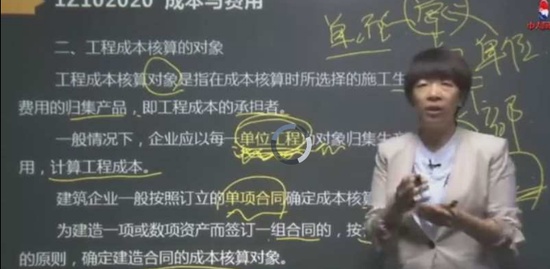 1Z102020 成本与费用
二、工程成本核算的对象
工程成本核算对象是指在成本核算时所选择的施工生
费用的归集产品,即工程成本的承担者。
一般情况下,企业应以每一单位工程为对象归集生
用,计算工程成本。
建筑企业一般按照订立的单项合同确定成本核算
为建造一项或数项资产而签订一组合同的,按
的原则,确定建造合同的成本核算对象。
单位